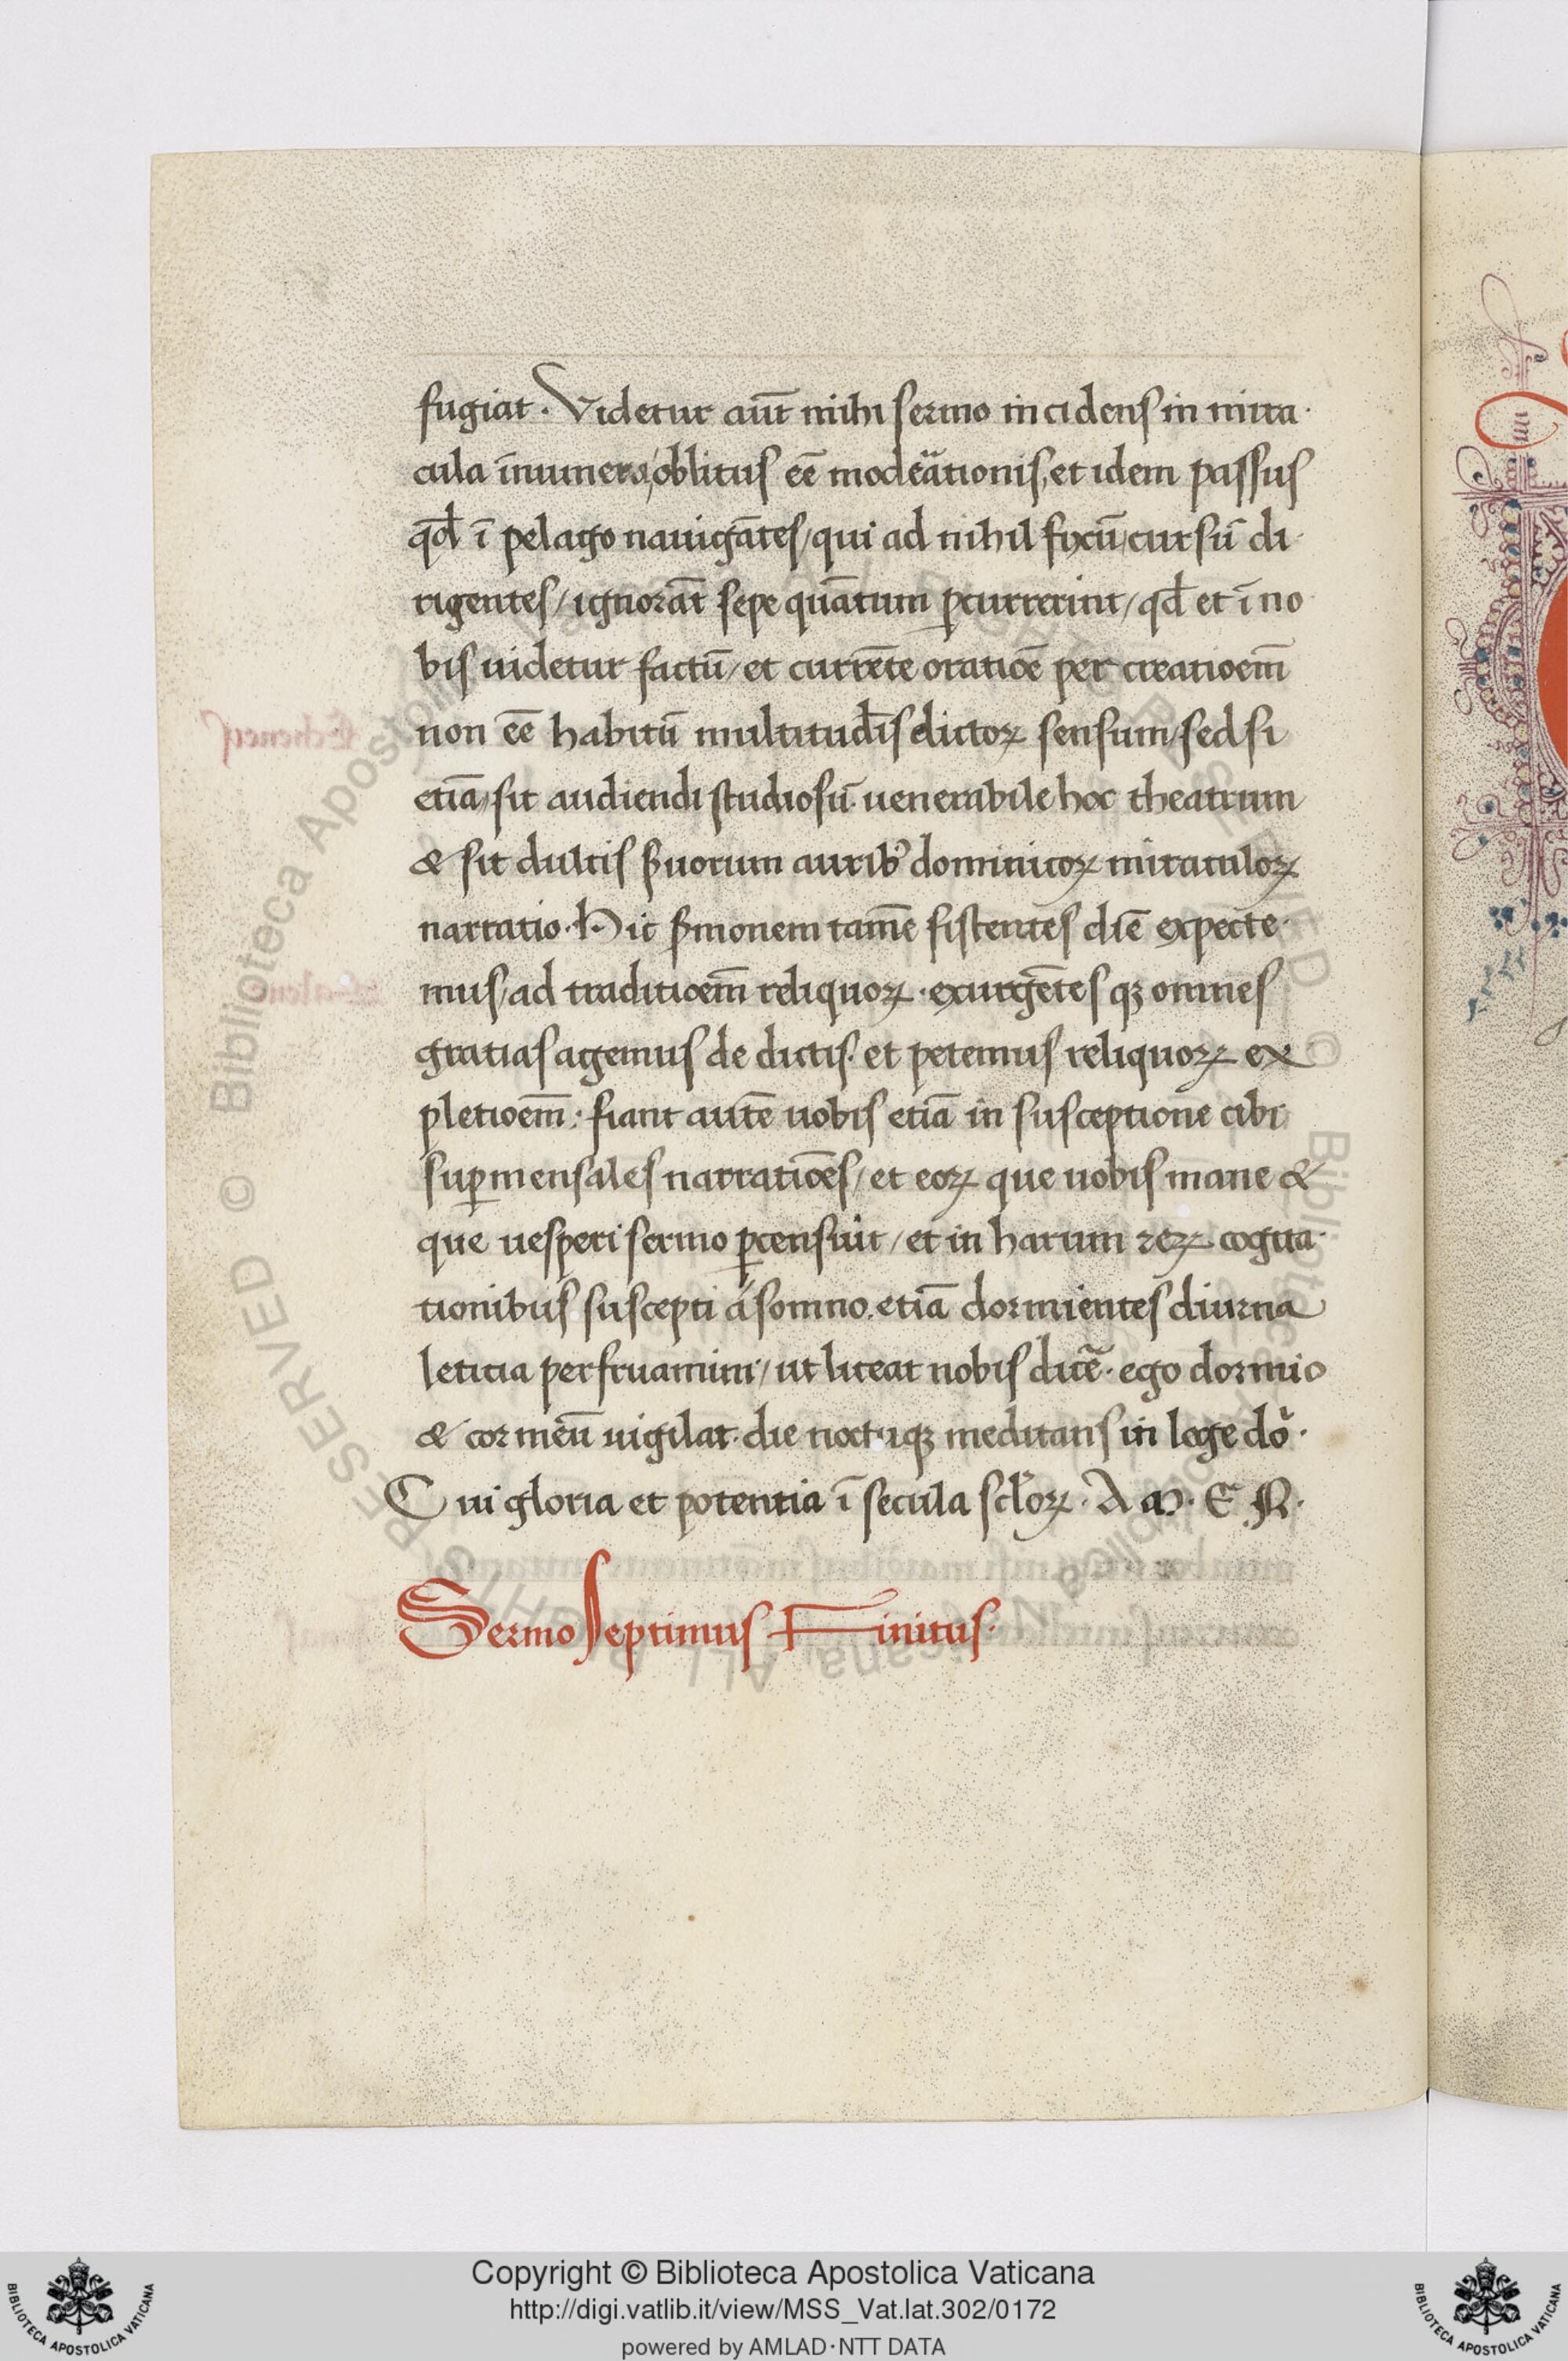 fugiat. Videtur aut̄ mihi sermo incidens in mira·
cula īnumera/oblitus eē modeātionis, et idem passus
qd̄ ī pelago nauigātes/qui ad nihil fixū/cursū di·
rigentes/ignorāt sepe quātum ꝑcurrerint/qd̄ et ī no
bis uidetur factū/et currēte oratiōe per creatioem̄
non eē habitū multitudīs dictoꝝ sensum/sed si
etiā/sit audiendi studiosū· uenerabile hoc theatrum
& sit dulcis ẜuorum auribꝰ dominicoꝝ miraculoꝝ
narratio. Hic ẜmonem tamē sistentes diē expecte·
mus/ad traditioem̄ reliquoꝝ· exurgētes qꝫ omnes
gratias agemus de dictis· et petemus reliquoꝝ ex
pletioem̄: fiant autē uobis etiā in susceptione cibi
suꝑmensales narratiōes/et eoꝝ que uobis mane &
que uesperi sermo ꝑcensuit/et in harum reꝝ cogita·
tionibus suscepti á somno. etiā dormientes diurna
leticia perfruamini/ut liceat nobis dicē· ego dormio
& cor meū uigilat· die noctuqꝫ meditans in lege do·
Cui gloria et potentia ī secula scl̄oꝝ. A M· E N·
Sermo septimus Finitus·
Copyright © Biblioteca Apostolica Vaticana
http://digi.vatlib.it/view/MSS_Vat.lat.302/0172
powered by AMLAD·NTT DATA
BIBLIOTECA APOSTOLICA VATICANA
BIBLIOTECA APOSTOLICA VATICANA